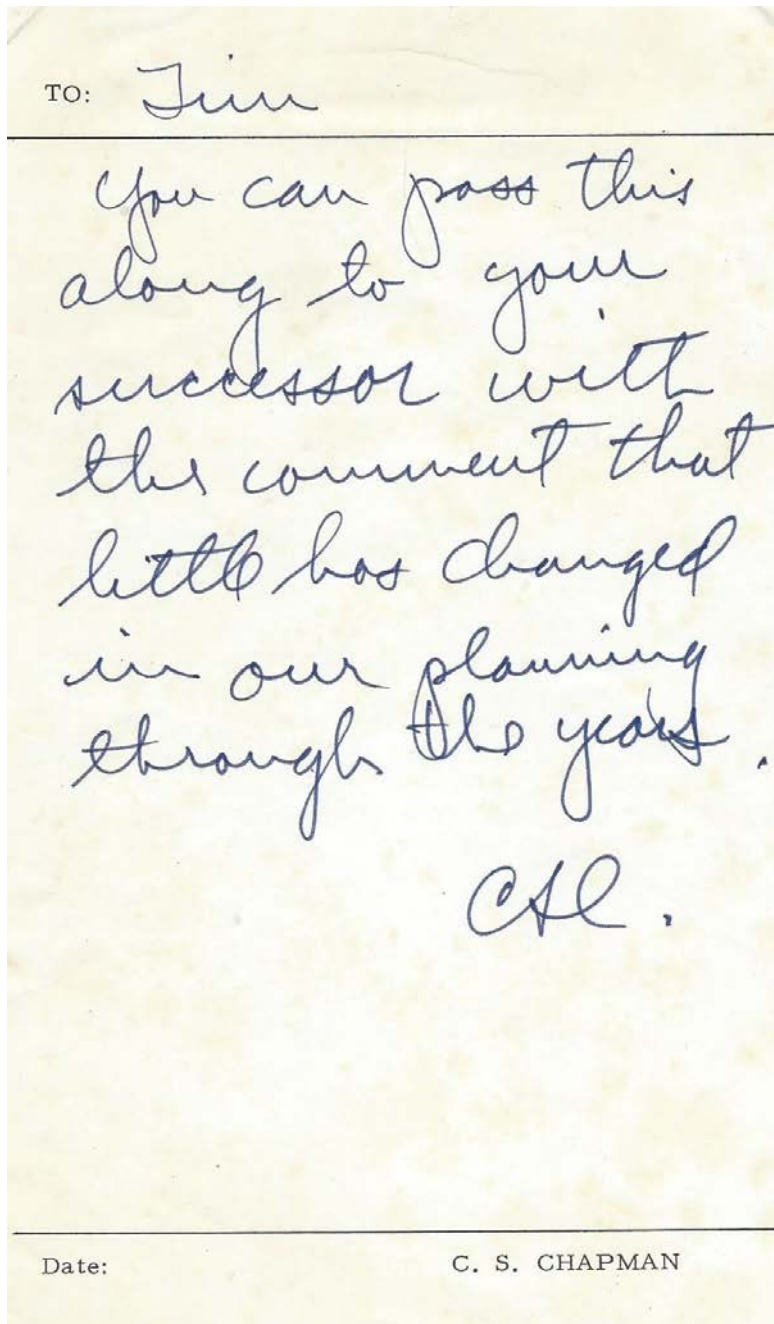 TO: Tim
You can pass this
along to your
successor with
the comment that
little has changed
in our planning
through the years.
CSC.
Date: C. S. CHAPMAN